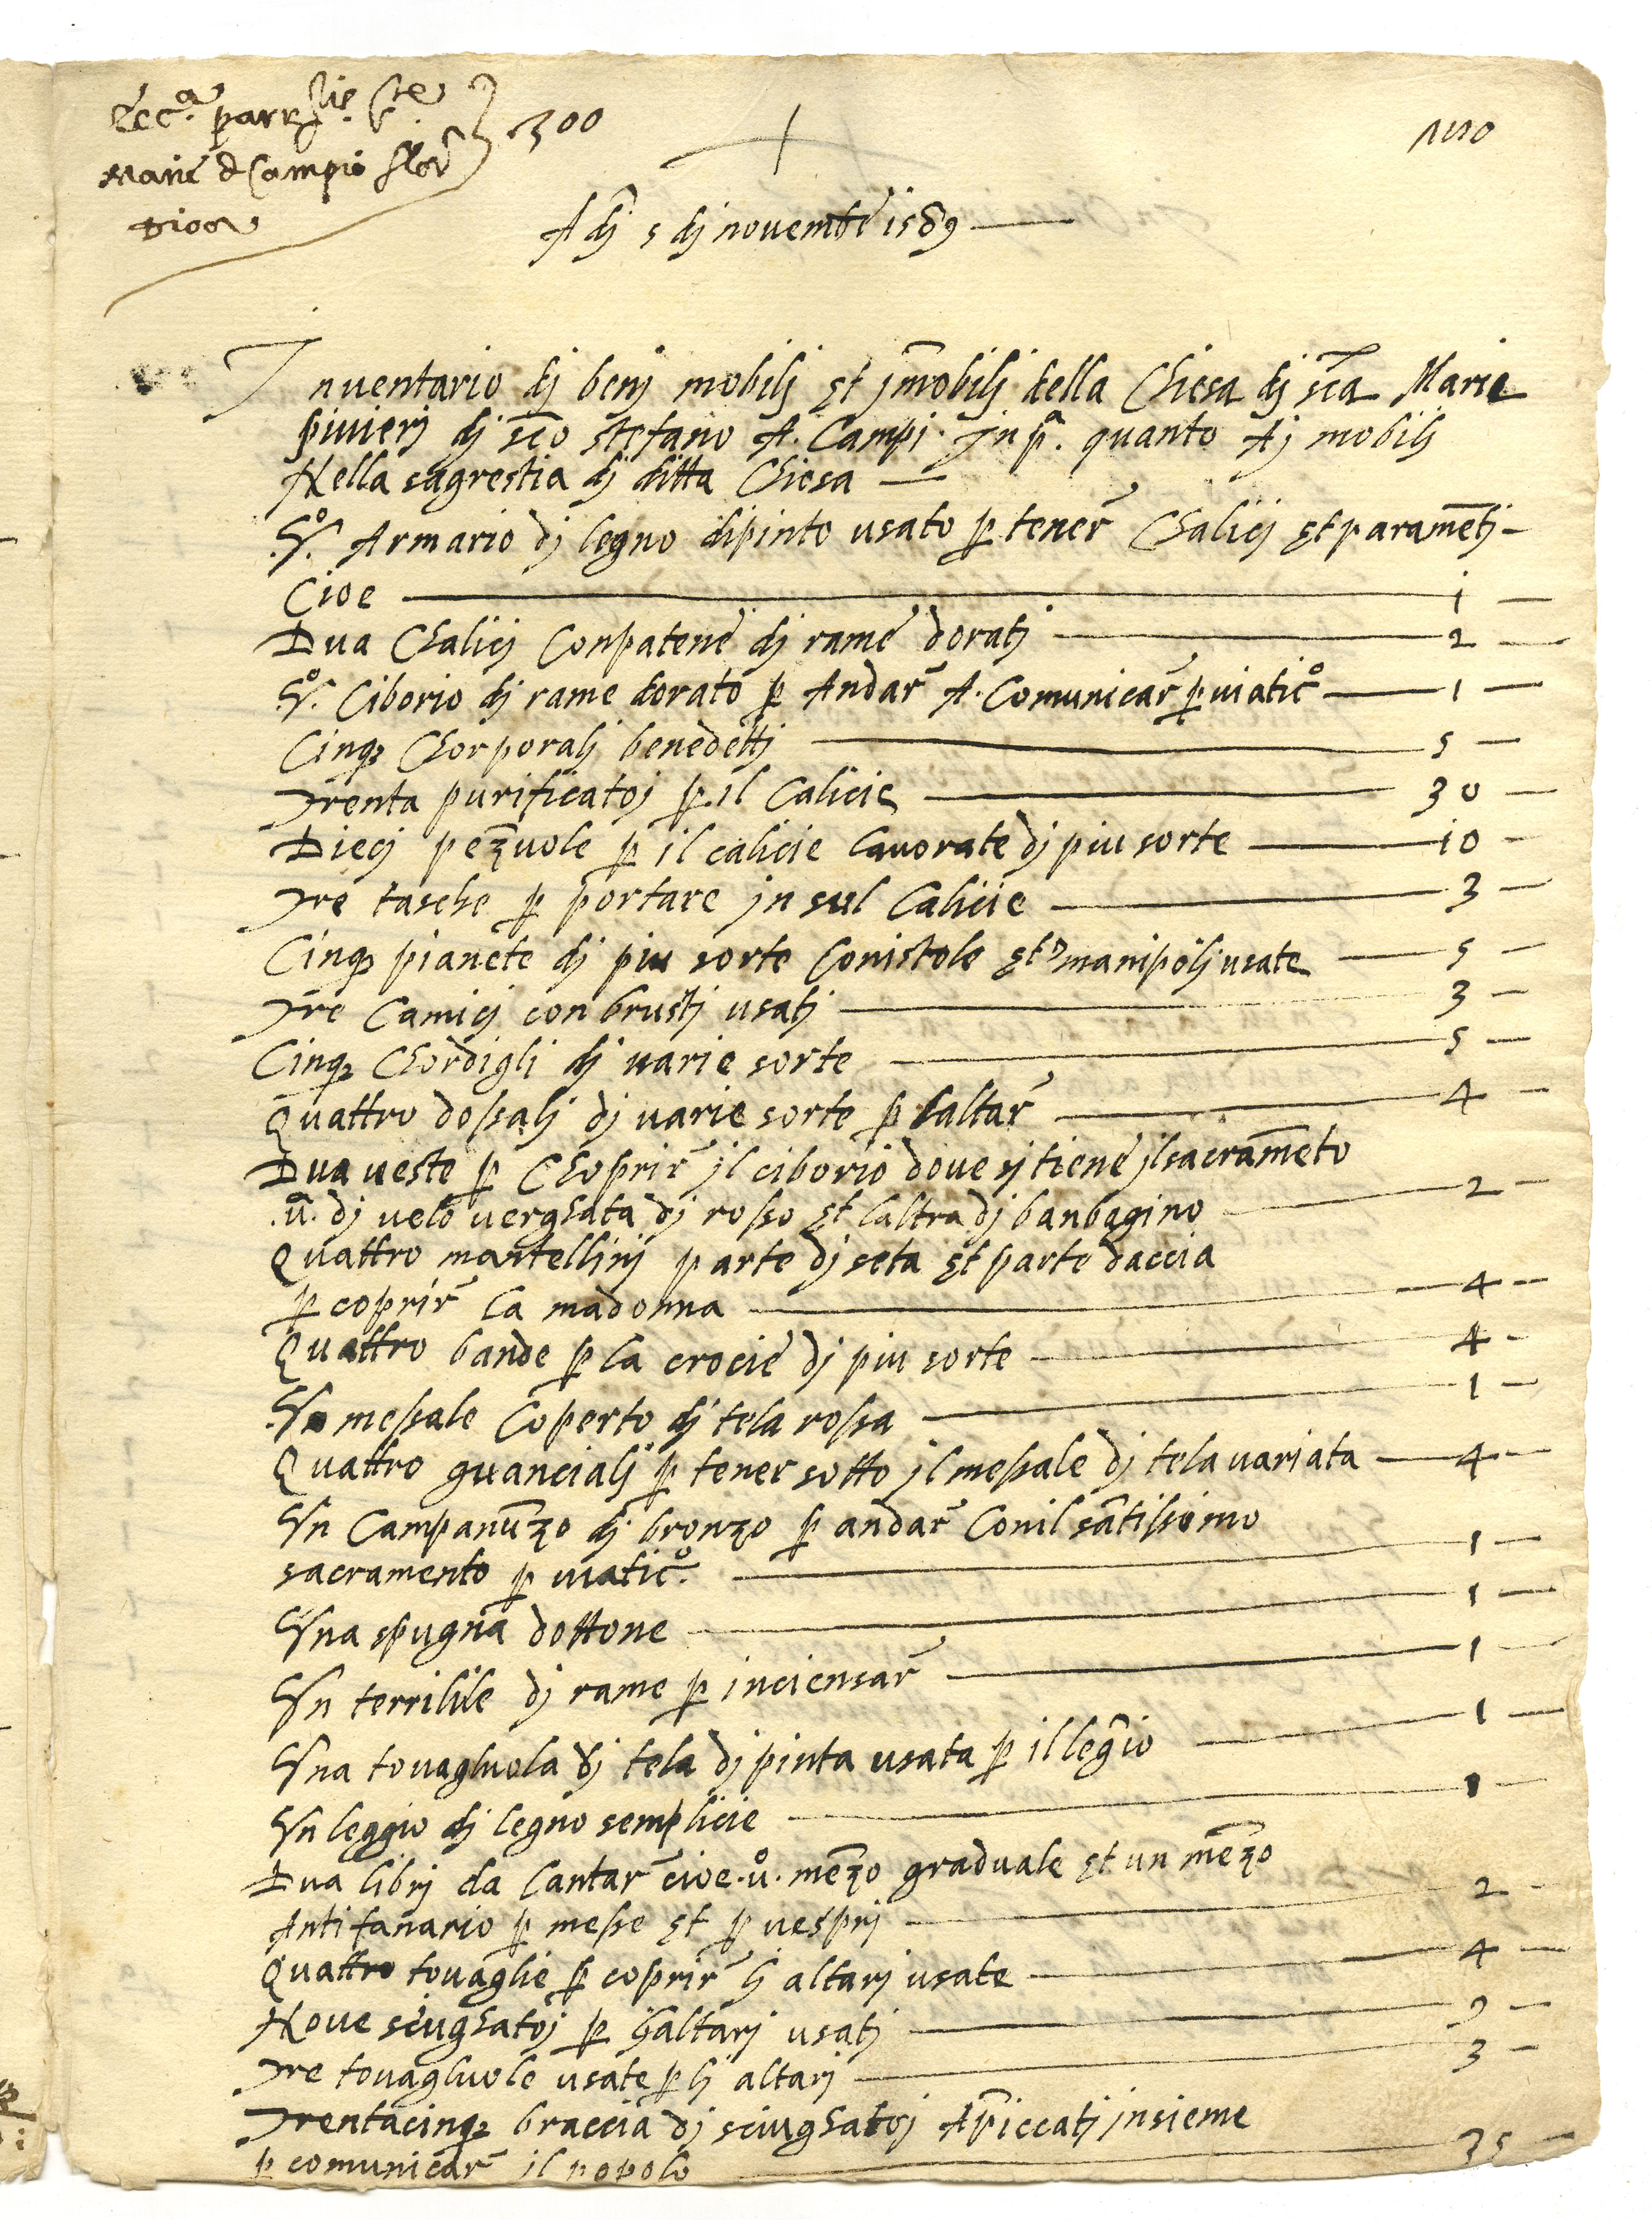 Ecc.a parr.lie S.te
Marie d Campio flor
Dioc
300
1110
Adj 5 dj novembre 1589
Inventario dj benj mobilj et jmobilj della Chiesa dj sca Marie
pivierj dj sco stefano A. Campi. Jn pa. quanto Aj mobilj
Nella sagrestia dj ditta Chiesa
.Vo. Armario dj legno dipinto usato p tener Chalicj et paramentj
Cioe 1
Dua Chalicj Conpatene dj rame doratj 2
.Vo. Ciborio dj rame dorato p Andar A. Comunicar p viatico 1
Cinq; Chorporalj benedettj 5
Trenta purificatoj p il Calicie 30
Diecj pezuole p il calicie lavorate dj piu sorte 10
Tre tasche p portare jn sul Calicie 3
Cinq; pianete dj piu sorte Conistole et manipolj usate 5
Tre Camicj con brustj usatj 3
Cinq; Chordigli dj varie sorte 5
Quattro dossalj dj varie sorte p laltar 4
Dua veste p Choprir jl ciborio dove sj tiene jl sacrameto
.ua. dj velo verghata dj rosso et laltra dj banbagino 2
Quattro mantellinj parte dj seta et parte daccia
p coprir la madonna 4
Quattro bande p la crocie dj piu sorte 4
Vo messale Coperto dj tela rossa 1
Quattro guancialj p tener sotto jl messale dj tela variata 4
Vn Campanuzo dj bronzo p andar Conil santissimo
sacramento p viatico. 1
Vna spugna dottone 1
Vn terribile dj rame p inciensar 1
Vna tovagluola dj tela djpinta usata p il legio 1
Vn leggio dj legno semplicie 1
Dua librj da Cantar cioe .uo. mezo graduale et un mezo
Antifanario p messe et p vesprj 2
Quattro tovaglie p coprir lj altarj usate 4
Nove sciughatoj p lj altarj usatj 9
Tre tovagluole usate p lj altarj 3
Trentacinq; braccia dj sciughatoj Apiccatj jnsieme
p comunicar il popolo 35